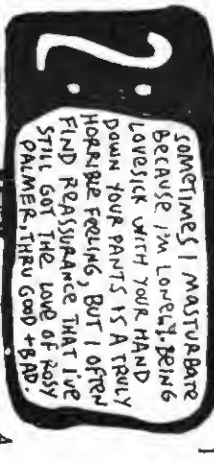 SOMETIMES I MASTURBATE
BECAUSE I'M LONELY. BEING
LOVESICK WITH YOUR HAND
DOWN YOUR PANTS IS A TRULY
HORRIBLE FEELING, BUT I OFTEN
FIND REASSURANCE THAT I'VE
STILL GOT THE LOVE OF ROSY
PALMER, THRU GOOD + BAD.